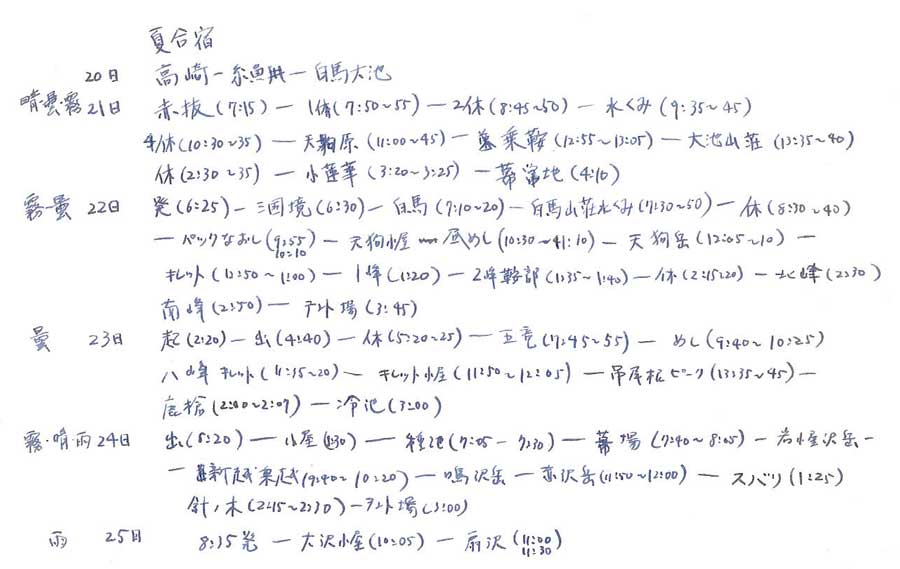 夏合宿
20日 高崎ー糸魚川ー白馬大池
晴・曇・霧 21日 赤抜(7:15)ー1休(7:50~55)ー2休(8:45~50)ー水くみ(9:35~45)
4休(10:30~35)ー天狗原(11:00~45)ー乗鞍(12:55~13:05)ー大池山荘(13:35~40)
休(2:30~35)ー小蓮華(3:20~3:25)ー幕営地(4:10)
霧ー曇 22日 発(6:25)ー三国境(6:30)ー白馬(7:10~20)ー白馬山荘水くみ(7:30~50)ー休(8:30~40)
ーパックなおし(9:55 10:10)ー天狗小屋ー昼めし(10:30~11:10)ー天狗岳(12:05~10)ー
キレット(12:50~1:00)ー1峰(1:20)ー2峰鞍部(1:35~1:40)ー休(2:15~20)ー北峰(2:30)
南峰(2:50)ーテント場(3:45)
曇 23日 起(2:20)ー出(4:40)ー休(5:20~25)ー五竜(7:45~55)ーめし(9:40~10:25)
八峰キレット(11:15~20)ーキレット小屋(11:50~12:05)ー吊尾根ピーク(13:35~45)ー
鹿槍(2:00~2:07)ー冷池(3:00)
霧・晴・雨 24日 出(5:20)ー小屋ー種池(7:05~7:30)ー幕場(7:40~8:05)ー岩小屋沢岳ー
ー新越乗越(9:40~10:20)ー鳴沢岳ー赤沢岳(11:50~12:00)ースバリ(1:25)
針ノ木(2:15~2:30)ーテント場(3:00)
雨 25日 8:35発ー大沢小屋(10:05)ー扇沢(11:00 11:30)